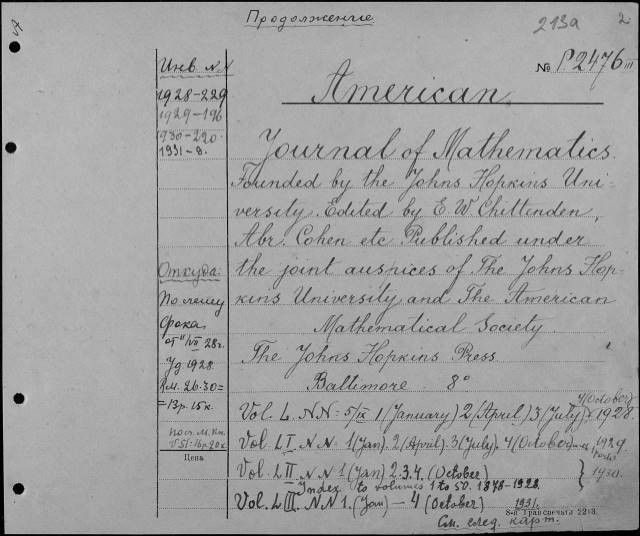 Продолжение
213а 2
№ P2476 III
Инв. №
1928-229
1929-196
1930-220
1931-8.
American
Journal of Mathematics.
Founded by the Johns Hopkins Uni-
versity. Edited by E. W. Chittenden,
Abr. Cohen etc. Published under
the joint auspices of The Johns Hop-
kins University and The American
Mathematical Society.
The Johns Hopkins Press
Baltimore 8°
Откуда:
По письму
Фока
от 11/VII 28 г.
1928
Rм. 26.30=
=13 р. 15 к.
Цена
4 (October)
Vol. L. NN = 5/IX 1 (January) 2 (April) 3 (July) 1928
Vol. LI. NN. 1 (Jan). 2 (April). 3 (July). 4 (October) 1929
Vol. LII. NN 1 (Jan) 2. 3. 4. (October) } 1930.
Index to volumes 1 to 50. 1878-1928.
Vol. LIII. NN 1. (Jan) - 4 (October) 1931.
См. след. карт.